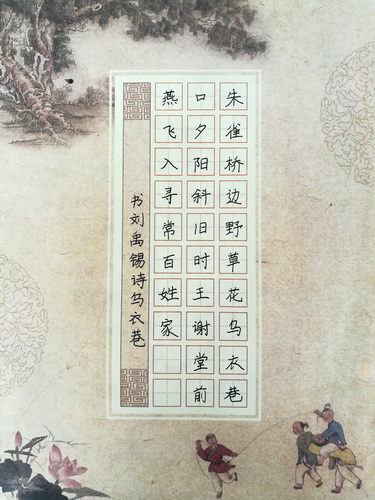 朱雀桥边野草花乌衣巷
口夕阳斜旧时王谢堂前
燕飞入寻常百姓家
书刘禹锡诗乌衣巷